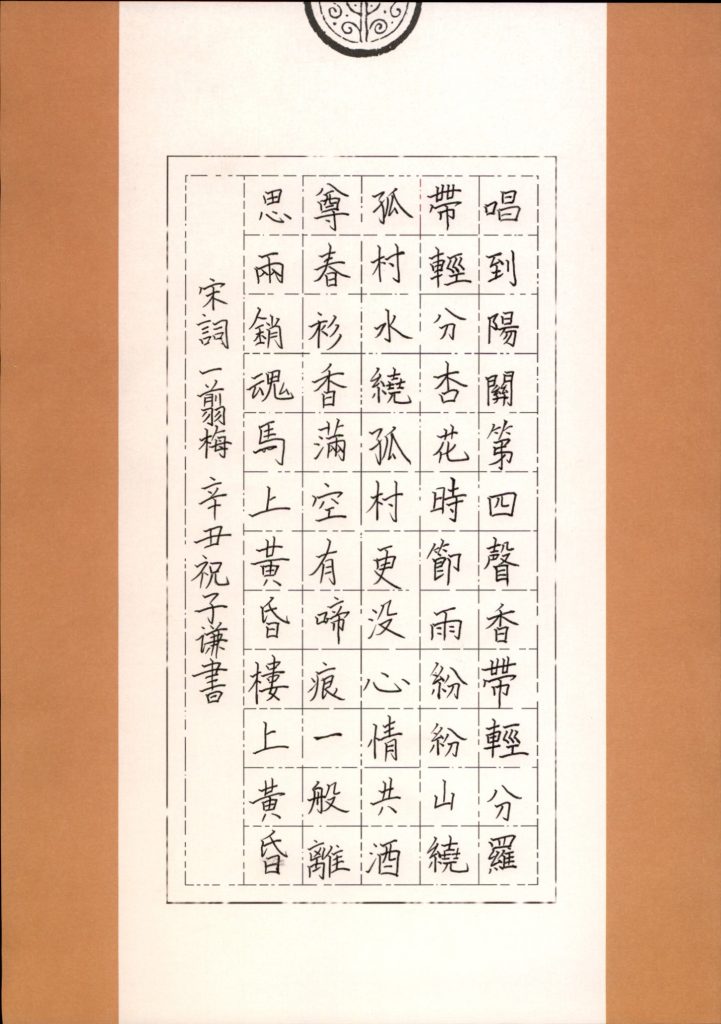 唱到陽關第四聲香帶輕分羅
帶輕分杏花時節雨紛紛山繞
孤村水繞孤村更没心情共酒
尊春衫香滿空有啼痕一般離
思兩銷魂馬上黃昏樓上黃昏
宋詞一翦梅 辛丑祝子谦書